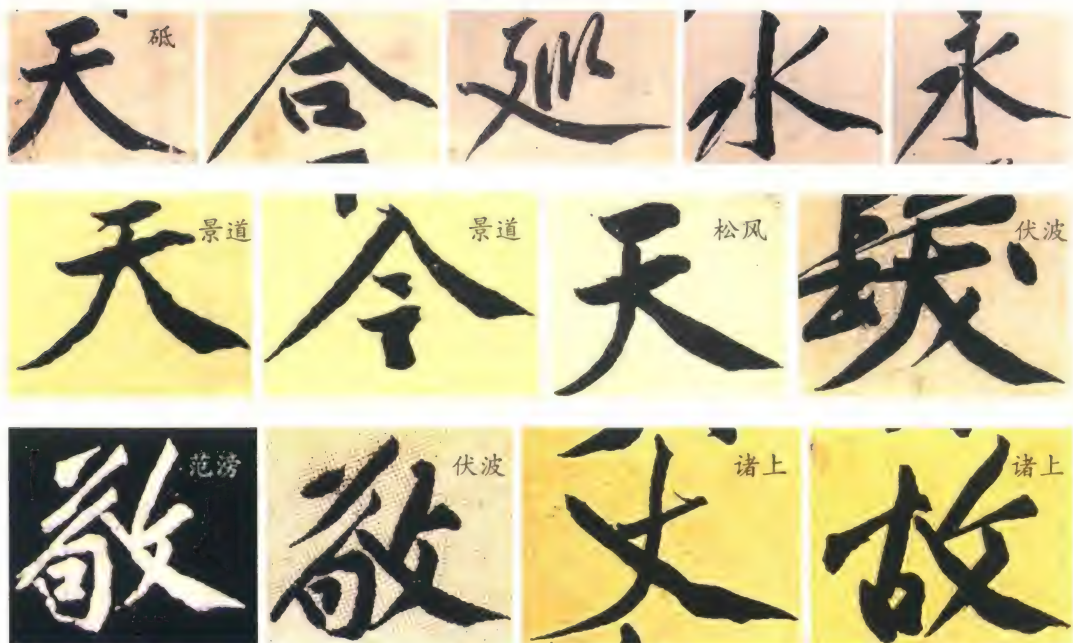 天 砥 合 巡 水 永
天 景道 今 景道 天 松风 髮 伏波
敬 范滂 敬 伏波 丈 诸上 故 诸上